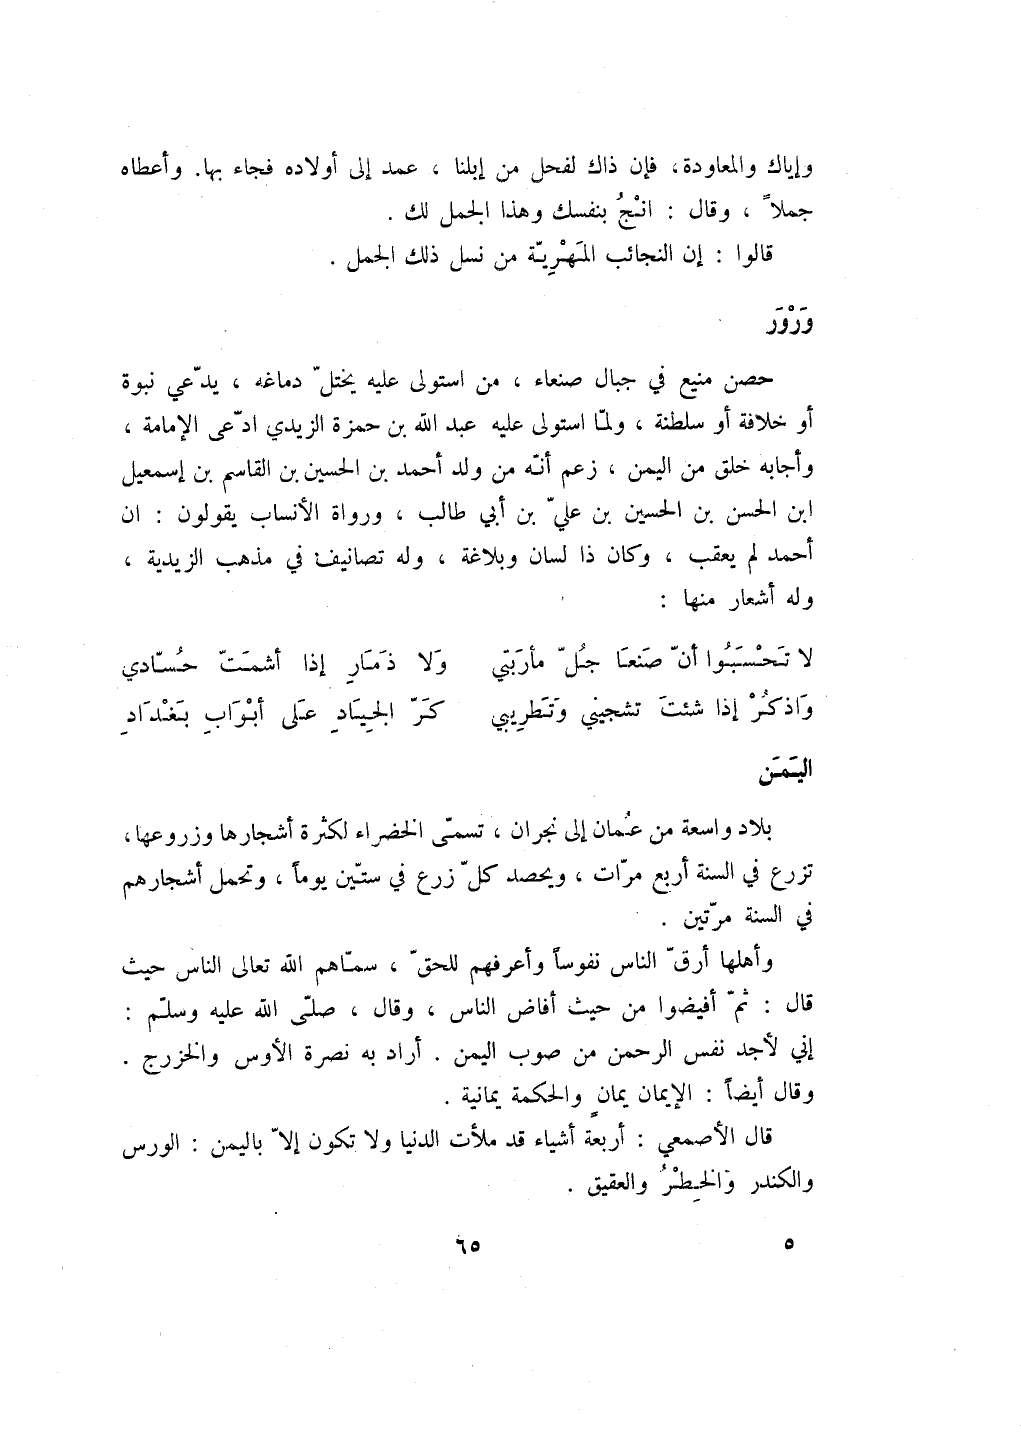 وإياك والمعاودة، فإن ذاك لفحل من إبلنا ، عمد إلى أولاده فجاء بها. وأعطاه
جملاً ، وقال : انْجُ بنفسك وهذا الجمل لك .
قالوا : إن النجائب المَهْرِيّة من نسل ذلك الجمل .
وَرْوَر
حصن منيع في جبال صنعاء ، من استولى عليه يختلّ دماغه ، يدّعي نبوة
أو خلافة أو سلطنة ، ولمّا استولى عليه عبد الله بن حمزة الزيدي ادّعى الإمامة ،
وأجابه خلق من اليمن ، زعم أنّه من ولد أحمد بن الحسين بن القاسم بن إسمعيل
ابن الحسن بن الحسين بن عليّ بن أبي طالب ، ورواة الأنساب يقولون : ان
أحمد لم يعقب ، وكان ذا لسان وبلاغة ، وله تصانيف في مذهب الزيدية ،
وله أشعار منها :
لا تَحْسَبُوا أنّ صَنعَا جُلّ مأرَبَتي وَلا ذَمَارِ إذا أشمَتّ حُسّادي
وَاذكُرْ إذا شئتَ تشجيني وَتَطرِيبي كَرّ الجِيَادِ عَلى أبْوَابِ بَغْدَادِ
اليَمَن
بلاد واسعة من عُمان إلى نجران ، تسمّى الخضراء لكثرة أشجارها وزروعها،
تزرع في السنة أربع مرّات ، ويحصد كلّ زرع في ستّين يوماً ، وتحمل أشجارهم
في السنة مرّتين .
وأهلها أرقّ الناس نفوساً وأعرفهم للحقّ ، سمّاهم الله تعالى الناس حيث
قال : ثمّ أفيضوا من حيث أفاض الناس ، وقال ، صلّى الله عليه وسلّم :
إني لأجد نفس الرحمن من صوب اليمن . أراد به نصرة الأوس والخزرج .
وقال أيضاً : الإيمان يمانٍ والحكمة يمانية .
قال الأصمعي : أربعة أشياء قد ملأت الدنيا ولا تكون إلاّ باليمن : الورس
والكندر وَالخِطْرُ والعقيق .
٥ ٦٥